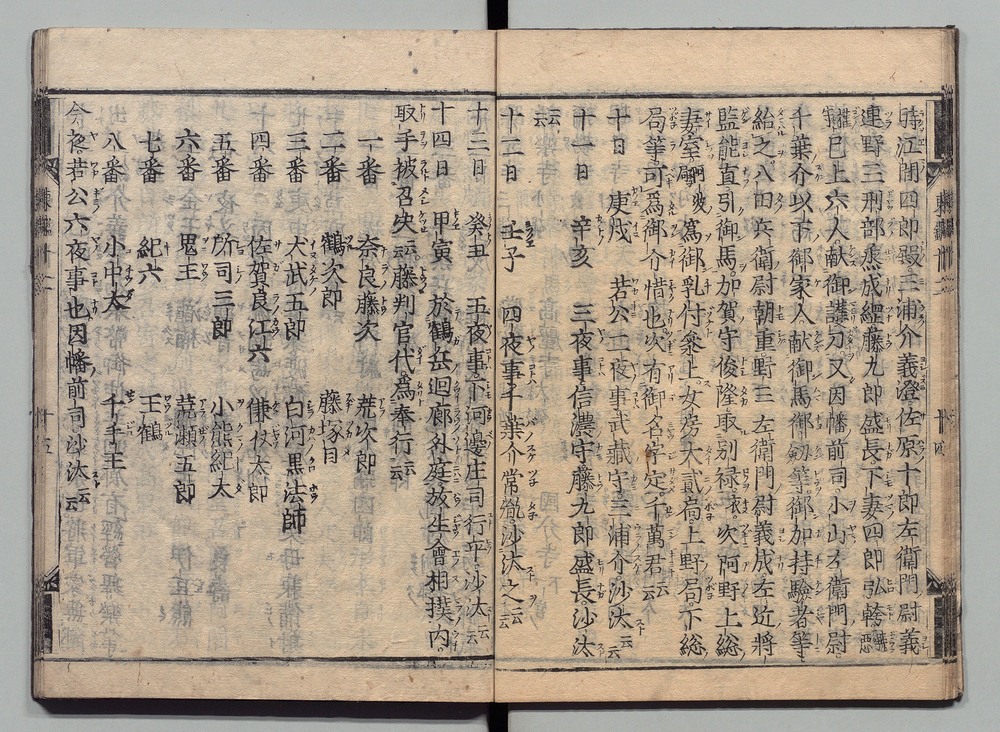 晴江間四郎殿三浦介義澄佐原十郎左衛門尉義
連野三刑部烝成綱藤九郎盛長下妻四郎弘幹
已上六人献御護刀又因幡前司小山左衛門尉
千葉介以下御家人献御馬御剱等御加持驗者等
給之八田兵衛尉朝重野三左衛門尉義成左近將
監能直引御馬加賀守俊隆取別禄衣次阿野上総
妻室為御乳付参上女房大貳局上野局下総
局等可為御介惜也次有御名字定千萬君云云
十日 庚戌 若公二夜事武藏守三浦介沙汰云云
十一日 辛亥 三夜事信濃守藤九郎盛長沙汰
云云
十二日 壬子 四夜事千葉介常胤沙汰之云云
十三日 癸丑 五夜事下河邊庄司行平沙汰云云
十四日 甲寅 於鶴岳廻廊外庭放生會相撲内
取手被召决云云藤判官代為奉行云云
一番 奈良藤次 荒次郎
二番 鶴次郎 藤塚目
三番 犬武五郎 白河黒法師
四番 佐賀良江六 傔仗太郎
五番 所司三郎 小熊紀太
六番 鬼王 荒瀬五郎
七番 紀六 王鶴
八番 小中太 千手王
今夜若公六夜事也因幡前司沙汰云云
東鑑十二
十四
十五